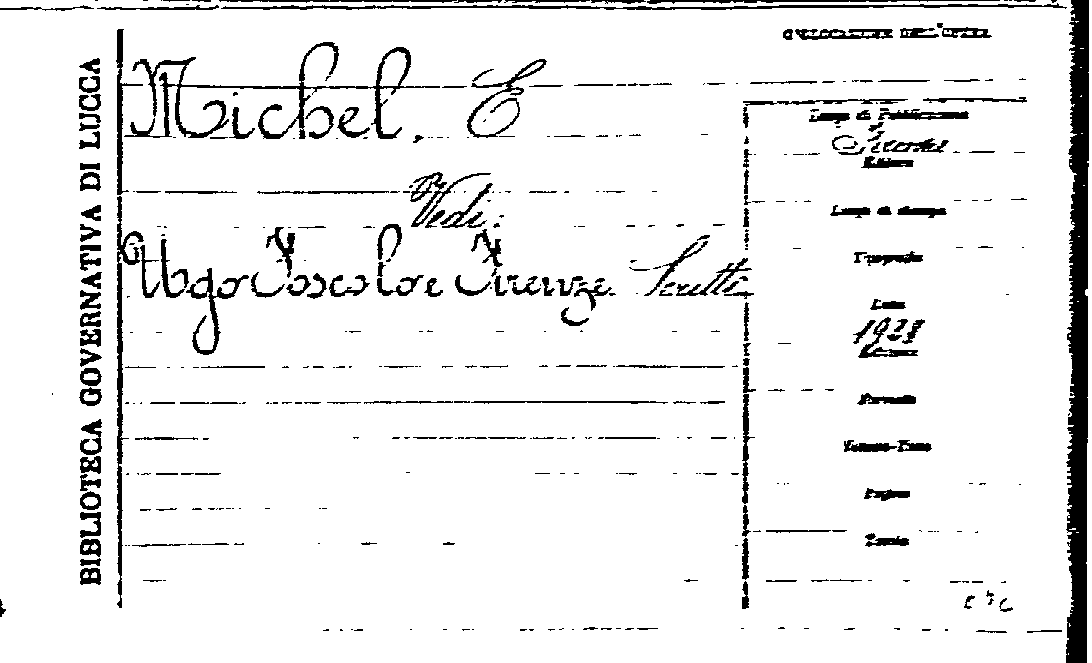 BIBLIOTECA GOVERNATIVA DI LUCCA
Michel, E
Vedi:
Ugo Foscolo e Firenze. Scritti
COLLOCAZIONE DELL'OPERA
Luogo di Pubblicazione
Firenze
Editore
Luogo di stampa
Tipografia
Data
1928
Edizione
Formato
Volume-Tomo
Pagine
Tavole